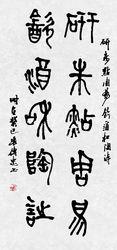 研朱點周易飲酒和陶詩
研朱點周易
飲酒和陶詩
時在癸巳